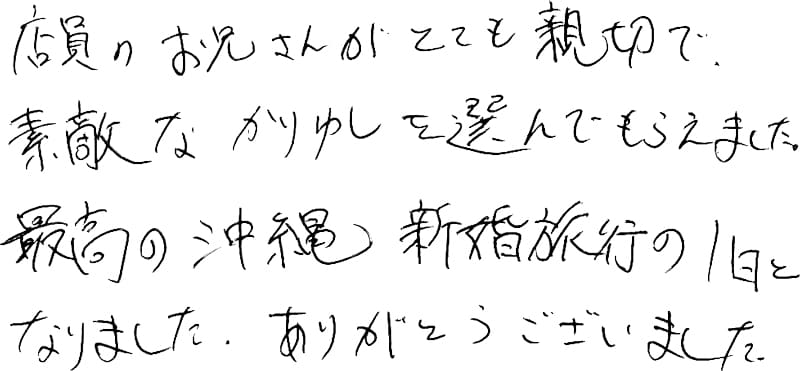 店員のお兄さんがとても親切で、
素敵なかりゆしを選んでもらえました。
最高の沖縄新婚旅行の1日と
なりました。ありがとうございました。